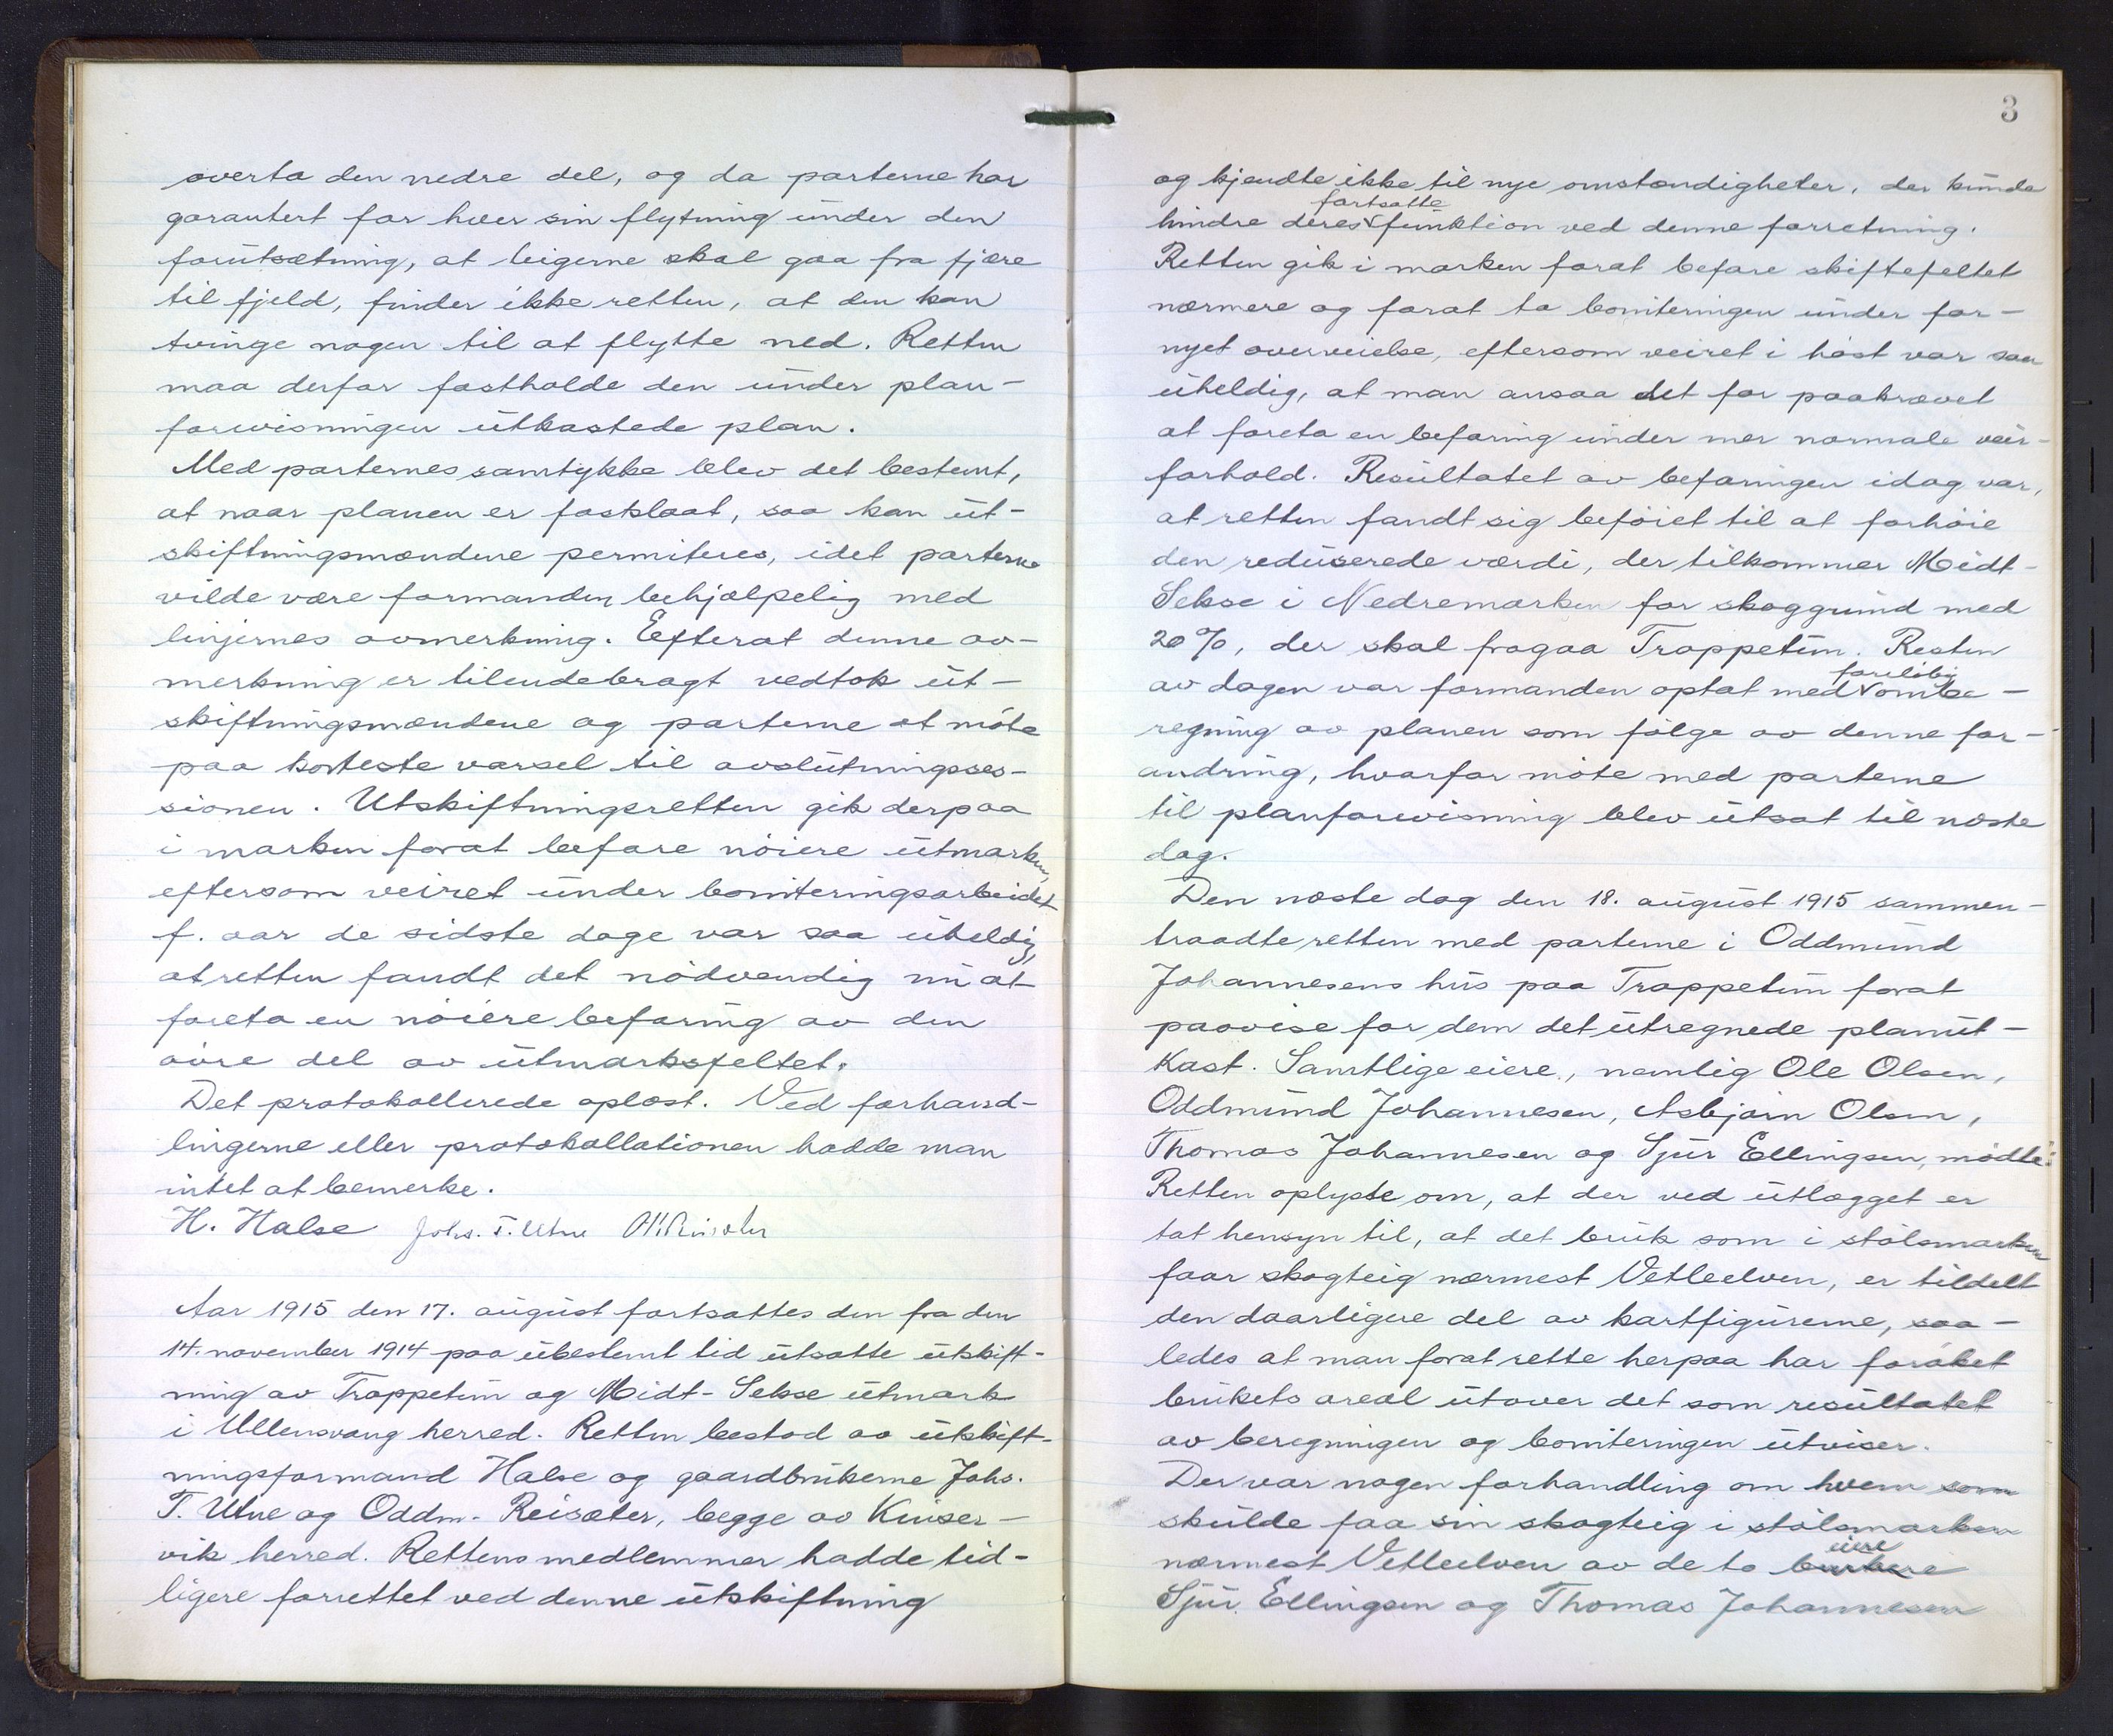 overta den nedre del, og da parterne har
garantert for hver sin flytning under den
forutsætning, at teigerne skal gaa fra fjære
til fjeld, finder ikke retten, at den kan
tvinge nogen til at flytte ned. Retten
maa derfor fastholde den under plan-
forevisningen utkastede plan.
Med parternes samtykke blev det bestemt,
at naar planen er fastslaat, saa kan ut-
skiftningsmændene permiteres, idet parterne
vilde være formanden behjælpelig med
linjernes avmerkning. Efterat denne av-
merkning er tilendebragt vedtok ut-
skiftningsmændene og parterne at møte
paa korteste varsel til avslutningsses-
sionen. Utskiftningsretten gik derpaa
i marken forat befare nöiere utmarken,
eftersom veiret under boniteringsarbeidet
f. aar de sidste dage var saa uheldig,
at retten fandt det nödvendig nu at
foreta en nöiere befaring av den
övre del av utmarksfeltet.
Det protokollerede oplæst. Ved forhand-
lingerne eller protokollationen hadde man
intet at bemerke.
H. Halse Johs. T. Utne
Aar 1915 den 17. august fortsattes den fra den
14. november 1914 paa ubestemt tid utsatte utskift-
ning av Trappetun og Midt-Sekse utmark
i Ullensvang herred. Retten bestod av utskift-
ningsformand Halse og gaardbrukerne Johs.
T. Utne og Oddm. Reisæter, begge av Kinser-
vik herred. Rettens medlemmer hadde tid-
ligere forrettet ved denne utskiftning
3
og kjendte ikke til nye omstændigheter, der kunde
fortsatte
hindre deres funktion ved denne forretning.
Retten gik i marken forat befare skiftefeltet
nærmere og forat ta boniteringen under for-
nyet overveielse, eftersom veiret i höst var saa
uheldig, at man ansaa det for paakrævet
at foreta en befaring under mer normale veir-
forhold. Resultatet av befaringen idag var,
at retten fandt sig beföiet til at forhöie
den reduserede værdi, der tilkommer Midt-
Sekse i Nedremarken for skoggrund med
20%, der skal fragaa Trappetun. Resten
foreløbig
av dagen var formanden optat med ombe-
regning av planen som fölge av denne for-
andring, hvorfor möte med parterne
til planforevisning blev utsat til næste
dag.
Den næste dag den 18. august 1915 sammen-
traadte retten med parterne i Oddmund
Johannesens hus paa Trappetun forat
paavise for dem det utregnede planut-
kast. Samtlige eiere, nemlig Ole Olsen,
Oddmund Johannesen, Asbjørn Olsen,
Thomas Johannesen og Sjur Ellingsen, mödte.
Retten oplyste om, at der ved utlægget er
tat hensyn til, at det bruk som i stölsmarken
faar skogteig nærmest Vetleelven, er tildelt
den daarligere del av kartfigurerne, saa-
ledes at man forat rette herpaa har foröket
brukets areal utover det som resultatet
av beregningen og boniteringen utviser.
Der var nogen forhandling om hvem som
skulde faa sin skogteig i stölsmarken
eiere
nærmest Vetleelven av de to brukere
Sjur Ellingsen og Thomas Johannesen